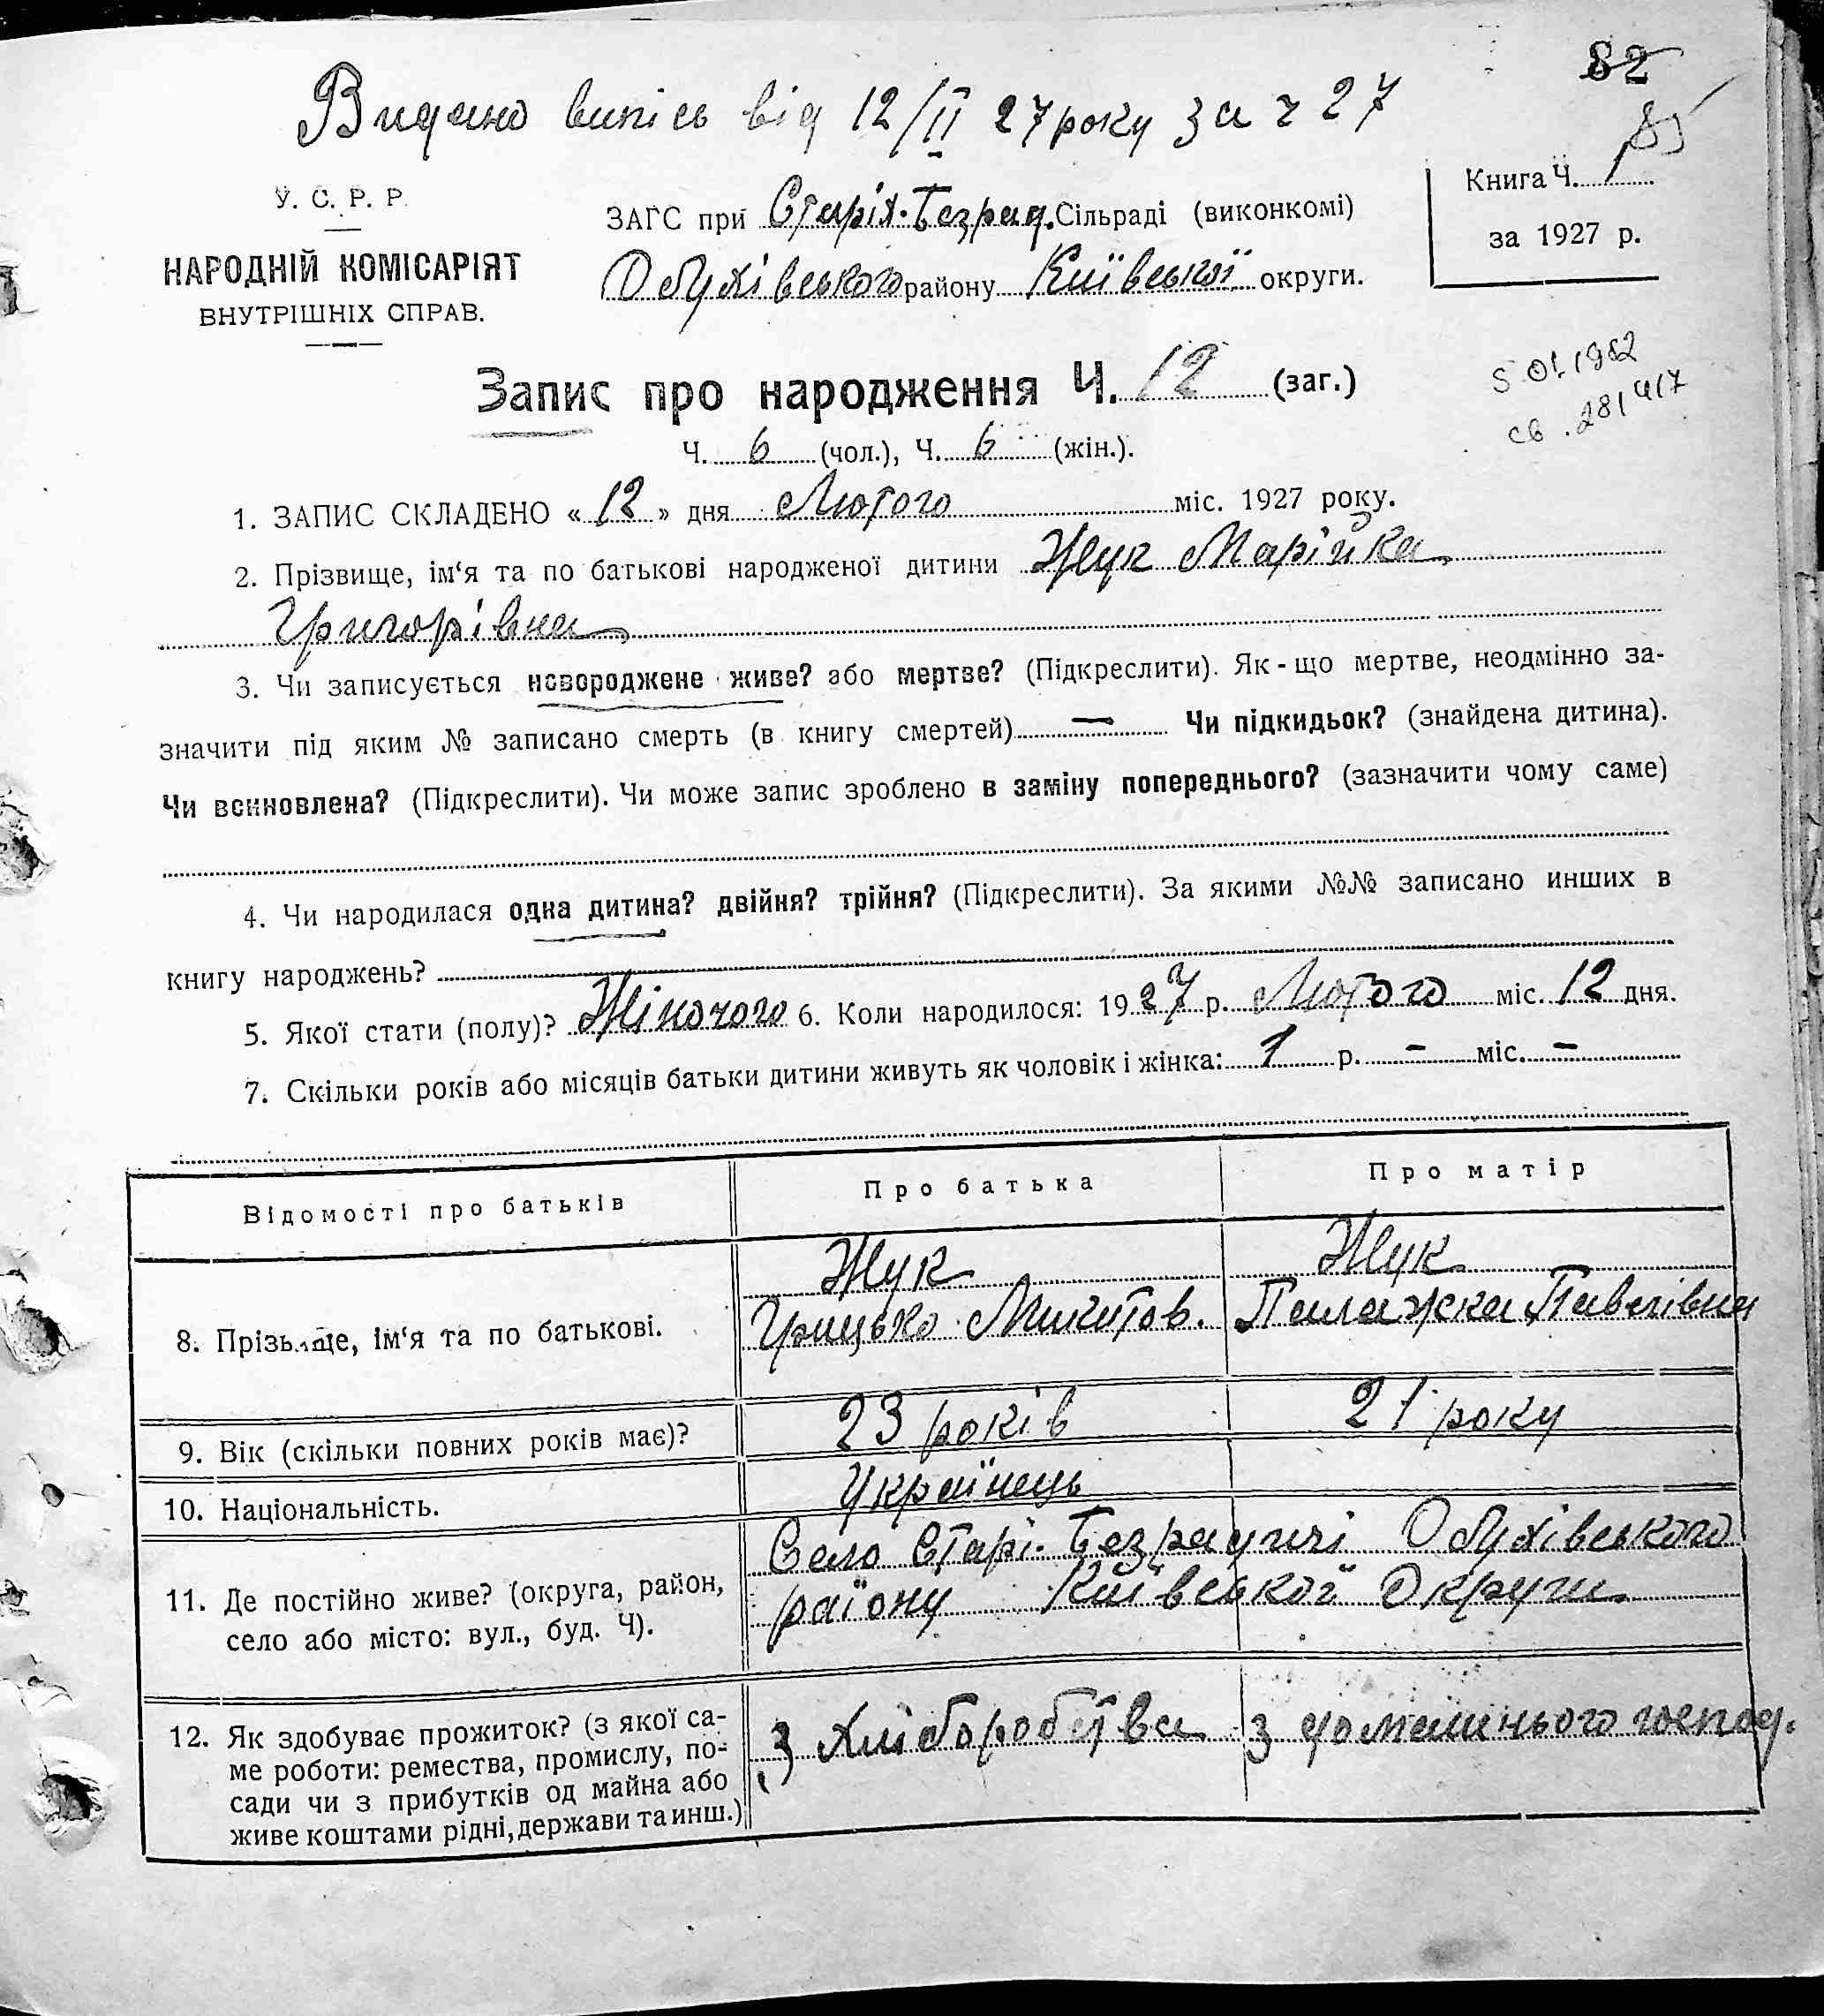 82
Видано випісь від 12/II 27 року за ч 27
У. С. Р. Р.
НАРОДНІЙ КОМІСАРІЯТ
ВНУТРІШНІХ СПРАВ.
ЗАГС при Старіх-Безрад. Сільраді (виконкомі)
Обухівського району Київської округи.
Книга Ч. 1
за 1927 р.
Запис про народження Ч. 12 (заг.)
Ч. 6 (чол.), Ч. 6 (жін.).
1. ЗАПИС СКЛАДЕНО «12» дня Лютого міс. 1927 року.
2. Прізвище, ім‘я та по батькові народженої дитини Жук Марійка
Григорівна
3. Чи записується новороджене живе? або мертве? (Підкреслити). Як-що мертве, неодмінно за-
значити під яким № записано смерть (в книгу смертей) — Чи підкидьок? (знайдена дитина).
Чи всиновлена? (Підкреслити). Чи може запис зроблено в заміну попереднього? (зазначити чому саме)
4. Чи народилася одна дитина? двійня? трійня? (Підкреслити). За якими №№ записано инших в
книгу народжень?
5. Якої стати (полу)? Жіночого 6. Коли народилося: 1927 р. Лютого міс. 12 дня.
7. Скільки років або місяців батьки дитини живуть як чоловік і жінка: 1 р. - міс. -
Відомості про батьків
Про батька
Про матір
8. Прізвище, ім‘я та по батькові.
Жук
Грицько Микитов.
Жук
Палажка Павлівна
9. Вік (скільки повних років має)?
23 років
21 року
10. Національність.
Українець
11. Де постійно живе? (округа, район,
село або місто: вул., буд. Ч).
Село Старі-Безрадичі Обухівського
району Київської Округи
12. Як здобуває прожиток? (з якої са-
ме роботи: ремества, промислу, по-
сади чи з прибутків од майна або
живе коштами рідні, держави та инш.)
з хліборобства
з домашнього господ.